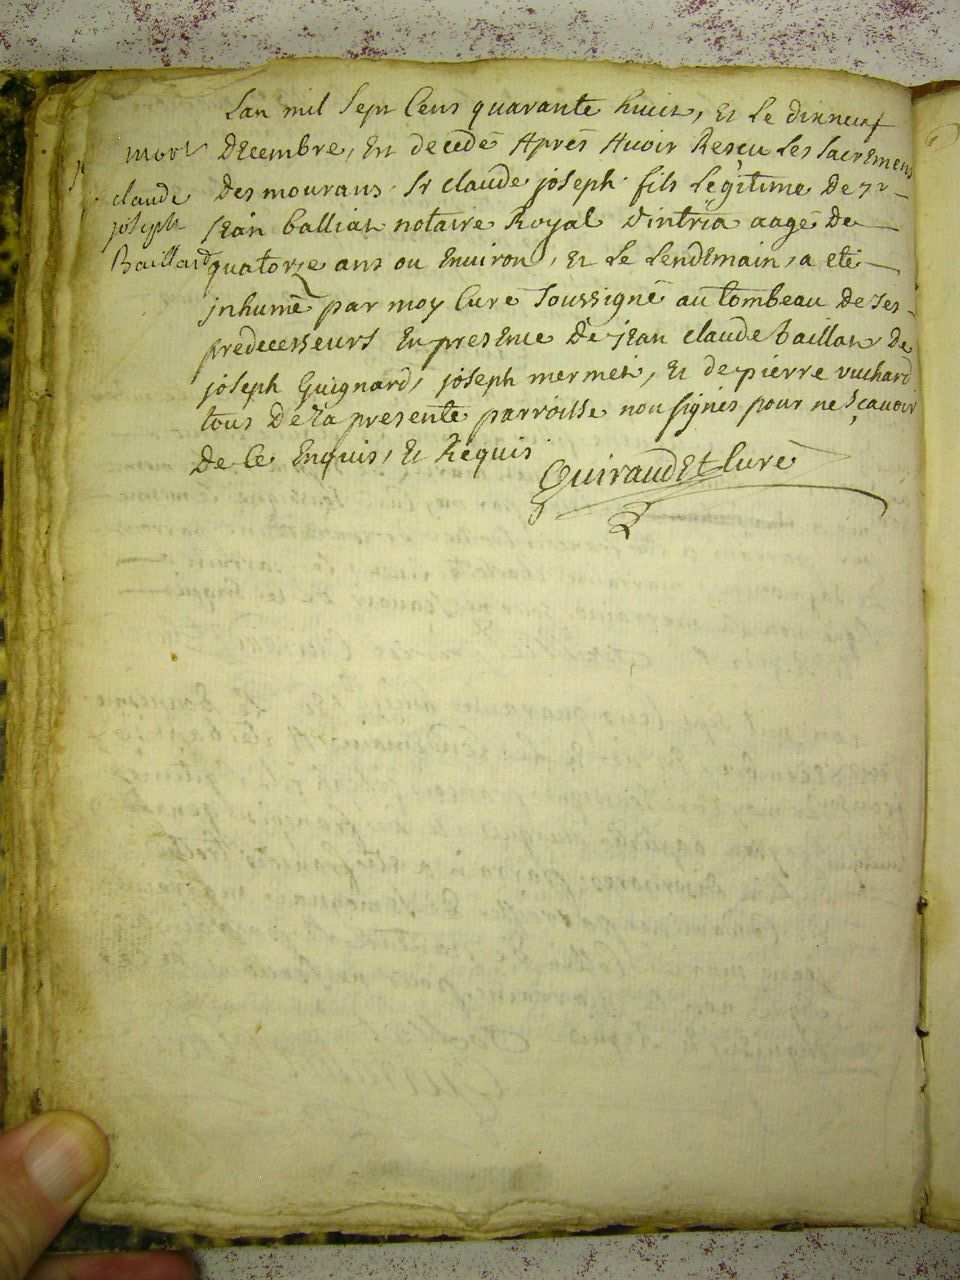 Lan mil sept Cens quarante huit, et Le dixneuf
mort
Decembre, Est decedé Aprés Avoir Resçu Les Sacremens
claude
Des mourans Sr claude joseph fils Legitime De Sr
joseph
jean balliat notaire Royal Dintria aagé De
Baillard
quatorze ans ou Environ, et Le Lendemain, a eté
jnhumé par moy Curé Soussigné au tombeau De Ses
predecesseurs En presence De jean claude baillat De
joseph Guignard, joseph mermet, et de pierre vuchard
tous De La presente parroisse non signés pour ne Sçavoir
De Ce Enquis, et Requis
Guiraudet Curé